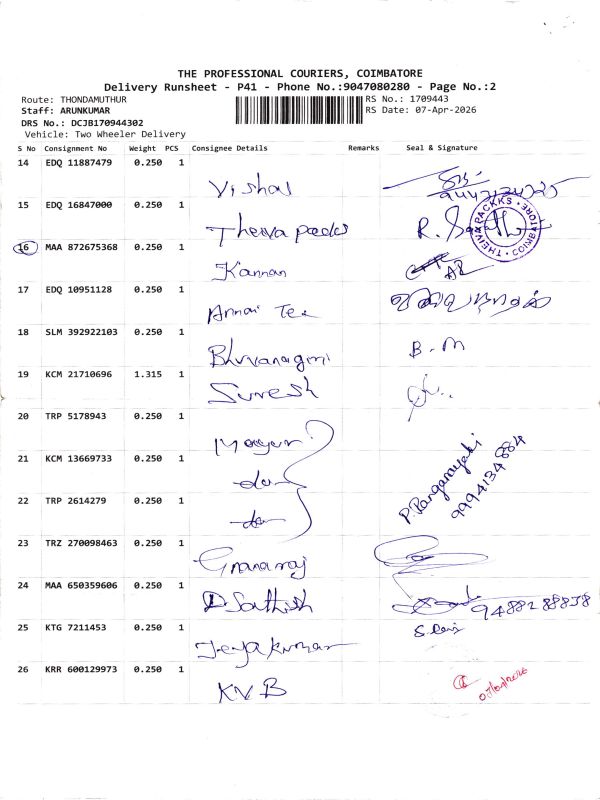 THE PROFESSIONAL COURIERS, COIMBATORE
Delivery Runsheet - P41 - Phone No.:9047080280 - Page No.:2
Route: THONDAMUTHUR
RS No.: 1709443
Staff: ARUNKUMAR
RS Date: 07-Apr-2026
DRS No.: DCJB170944302
Vehicle: Two Wheeler Delivery
S No Consignment No Weight PCS Consignee Details Remarks Seal & Signature
14 EDQ 11887479 0.250 1 Vishal
15 EDQ 16847000 0.250 1 Theiva packs R.
THEIVA PACKKS COIMBATORE
16 MAA 872675368 0.250 1 Kannan
17 EDQ 10951128 0.250 1 Annai Tex
18 SLM 392922103 0.250 1 B.M
19 KCM 21710696 1.315 1 Suresh
20 TRP 5178943 0.250 1
21 KCM 13669733 0.250 1 do P. Ranganayaki
9994134884
22 TRP 2614279 0.250 1 do
23 TRZ 270098463 0.250 1 Gnanaraj
24 MAA 650359606 0.250 1 D Sathish 9488288838
25 KTG 7211453 0.250 1 Jeyakumar
26 KRR 600129973 0.250 1 KVB